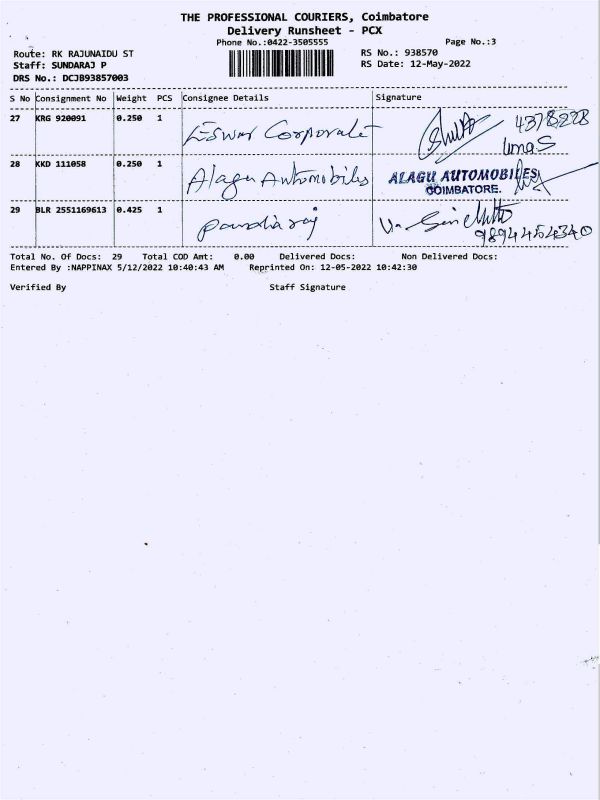 THE PROFESSIONAL COURIERS, Coimbatore
Delivery Runsheet - PCX
Phone No.:0422-3505555 Page No.:3
Route: RK RAJUNAIDU ST RS No.: 938570
Staff: SUNDARAJ P RS Date: 12-May-2022
DRS No.: DCJB93857003
S No Consignment No Weight PCS Consignee Details Signature
27 KRG 920091 0.250 1 Eswar Corporate 4378228
UmaS
28 KKD 111058 0.250 1 Alagu Automobiles ALAGU AUTOMOBILES
COIMBATORE.
29 BLR 2551169613 0.425 1 Pandia raj
9894454340
Total No. Of Docs: 29 Total COD Amt: 0.00 Delivered Docs: Non Delivered Docs:
Entered By :NAPPINAX 5/12/2022 10:40:43 AM Reprinted On: 12-05-2022 10:42:30
Verified By Staff Signature